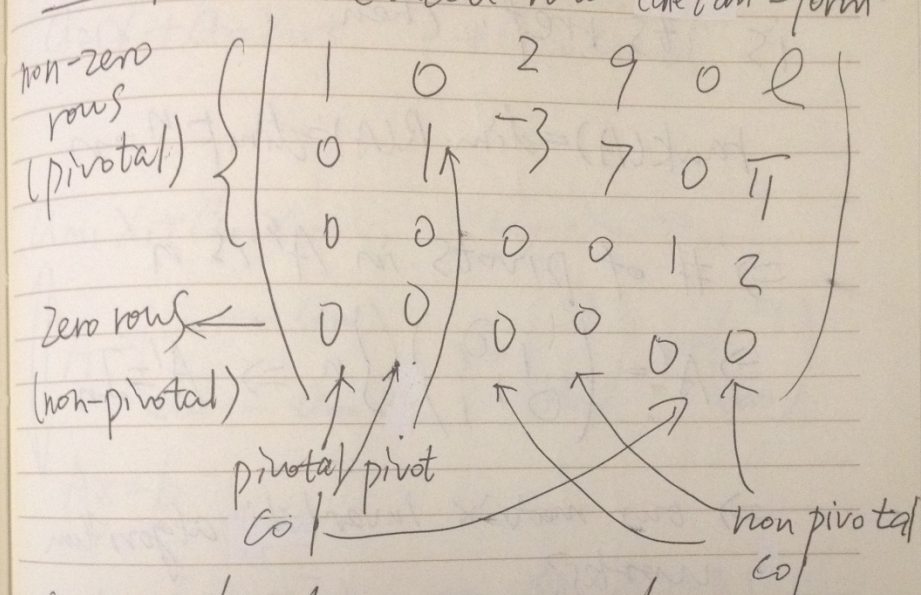 form
non-zero
rows
(pivotal)
1 0 2 9 0 e
0 1 -3 7 0 π
0 0 0 0 1 2
zero rows
0 0 0 0 0 0
(non-pivotal)
pivotal / pivot
col
non pivotal
col